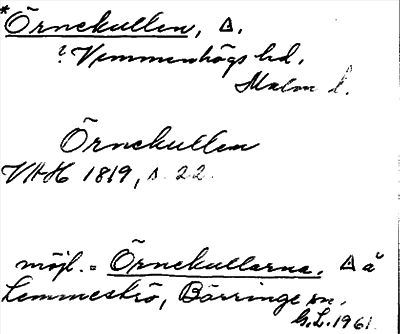 *Örnekullen, Δ.
? Vemmenhögs hd.
Malm l.
Örnekullen
VAH 1819, s. 22.
möjl. = Örnekullarna, Δ å
Lemmeströ, Börringe sn.
G.L. 1961.